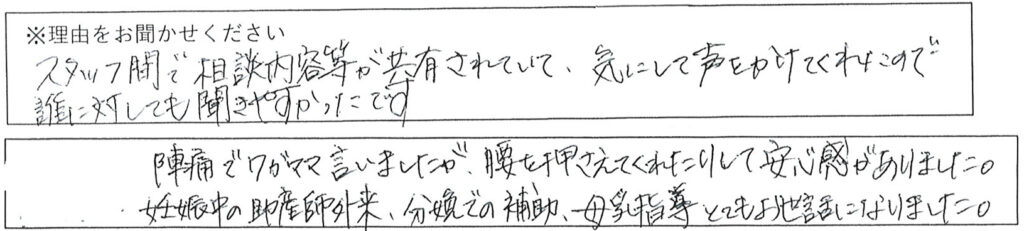 ※理由をお聞かせください
スタッフ間で相談内容等が共有されていて、気にして声をかけてくれたので
誰に対しても聞きやすかったです
陣痛でワガママ言いましたが、腰を押さえてくれたりして安心感がありました。
妊娠中の助産師外来、分娩での補助、母乳指導とてもお世話になりました。